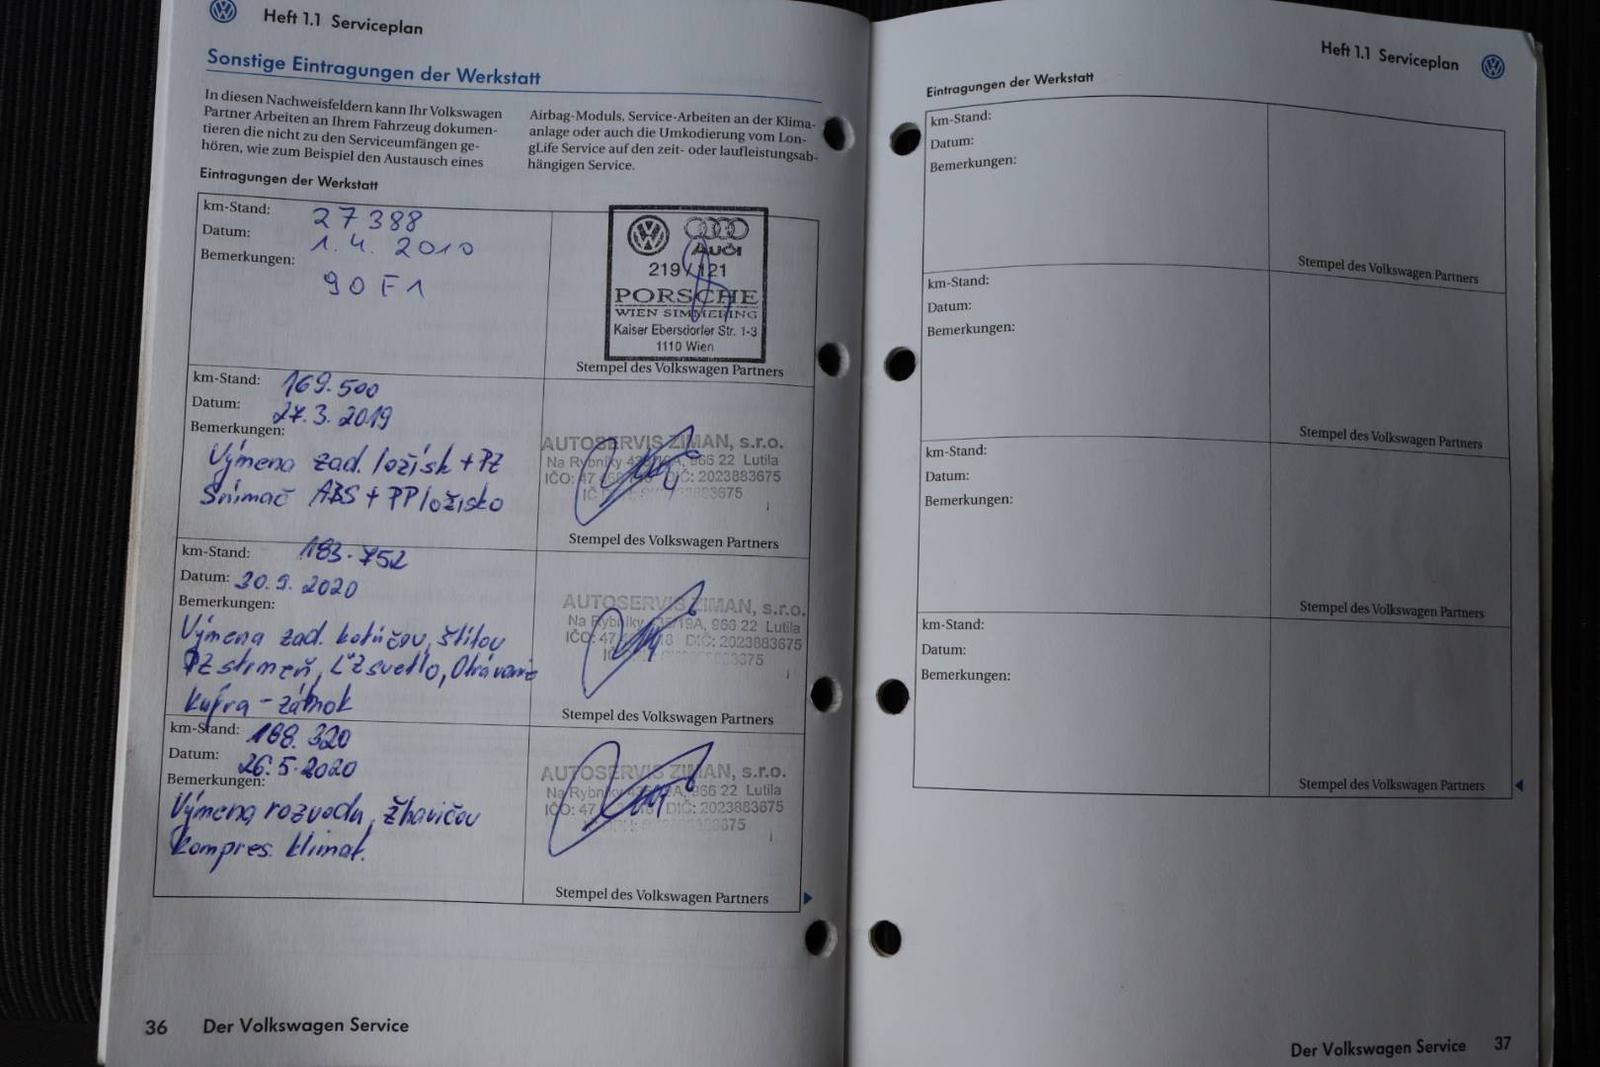 Heft 1.1 Serviceplan
Sonstige Eintragungen der Werkstatt
In diesen Nachweisfeldern kann Ihr Volkswagen
Partner Arbeiten an Ihrem Fahrzeug dokumen-
tieren die nicht zu den Serviceumfängen ge-
hören, wie zum Beispiel den Austausch eines
Airbag-Moduls, Service-Arbeiten an der Klima-
anlage oder auch die Umkodierung vom Lon-
gLife Service auf den zeit- oder laufleistungsab-
hängigen Service.
Eintragungen der Werkstatt
km-Stand: 27388
Datum: 1.4. 2010
Bemerkungen:
90 F1
Audi
219/121
PORSCHE
WIEN SIMMERING
Kaiser Ebersdorfer Str. 1-3
1110 Wien
Stempel des Volkswagen Partners
km-Stand: 169.500
Datum: 27.3.2019
Bemerkungen:
Výmena zad. ložísk + PZ
Snímač ABS + PP ložisko
AUTOSERVIS ZIMAN, s.r.o.
Na Rybníky 966 22 Lutila
IČO: 47 DIČ: 2023883675
Stempel des Volkswagen Partners
km-Stand: 183.752
Datum: 30.9.2020
Bemerkungen:
Výmena zad. kotúčov, štítov
PZ strmeň, ĽZ svetlo,
kufra - zámok
AUTOSERVIS ZIMAN, s.r.o.
Na Rybníky 966 22 Lutila
IČO: 47 DIČ: 2023883675
Stempel des Volkswagen Partners
km-Stand: 188.320
Datum: 26.5.2020
Bemerkungen:
Výmena rozvodu, žhavičov
kompres. klimat.
AUTOSERVIS ZIMAN, s.r.o.
Na Rybníky 966 22 Lutila
IČO: 47 DIČ: 2023883675
Stempel des Volkswagen Partners
36 Der Volkswagen Service
Heft 1.1 Serviceplan
Eintragungen der Werkstatt
km-Stand:
Datum:
Bemerkungen:
Stempel des Volkswagen Partners
km-Stand:
Datum:
Bemerkungen:
Stempel des Volkswagen Partners
km-Stand:
Datum:
Bemerkungen:
Stempel des Volkswagen Partners
km-Stand:
Datum:
Bemerkungen:
Stempel des Volkswagen Partners
Der Volkswagen Service 37